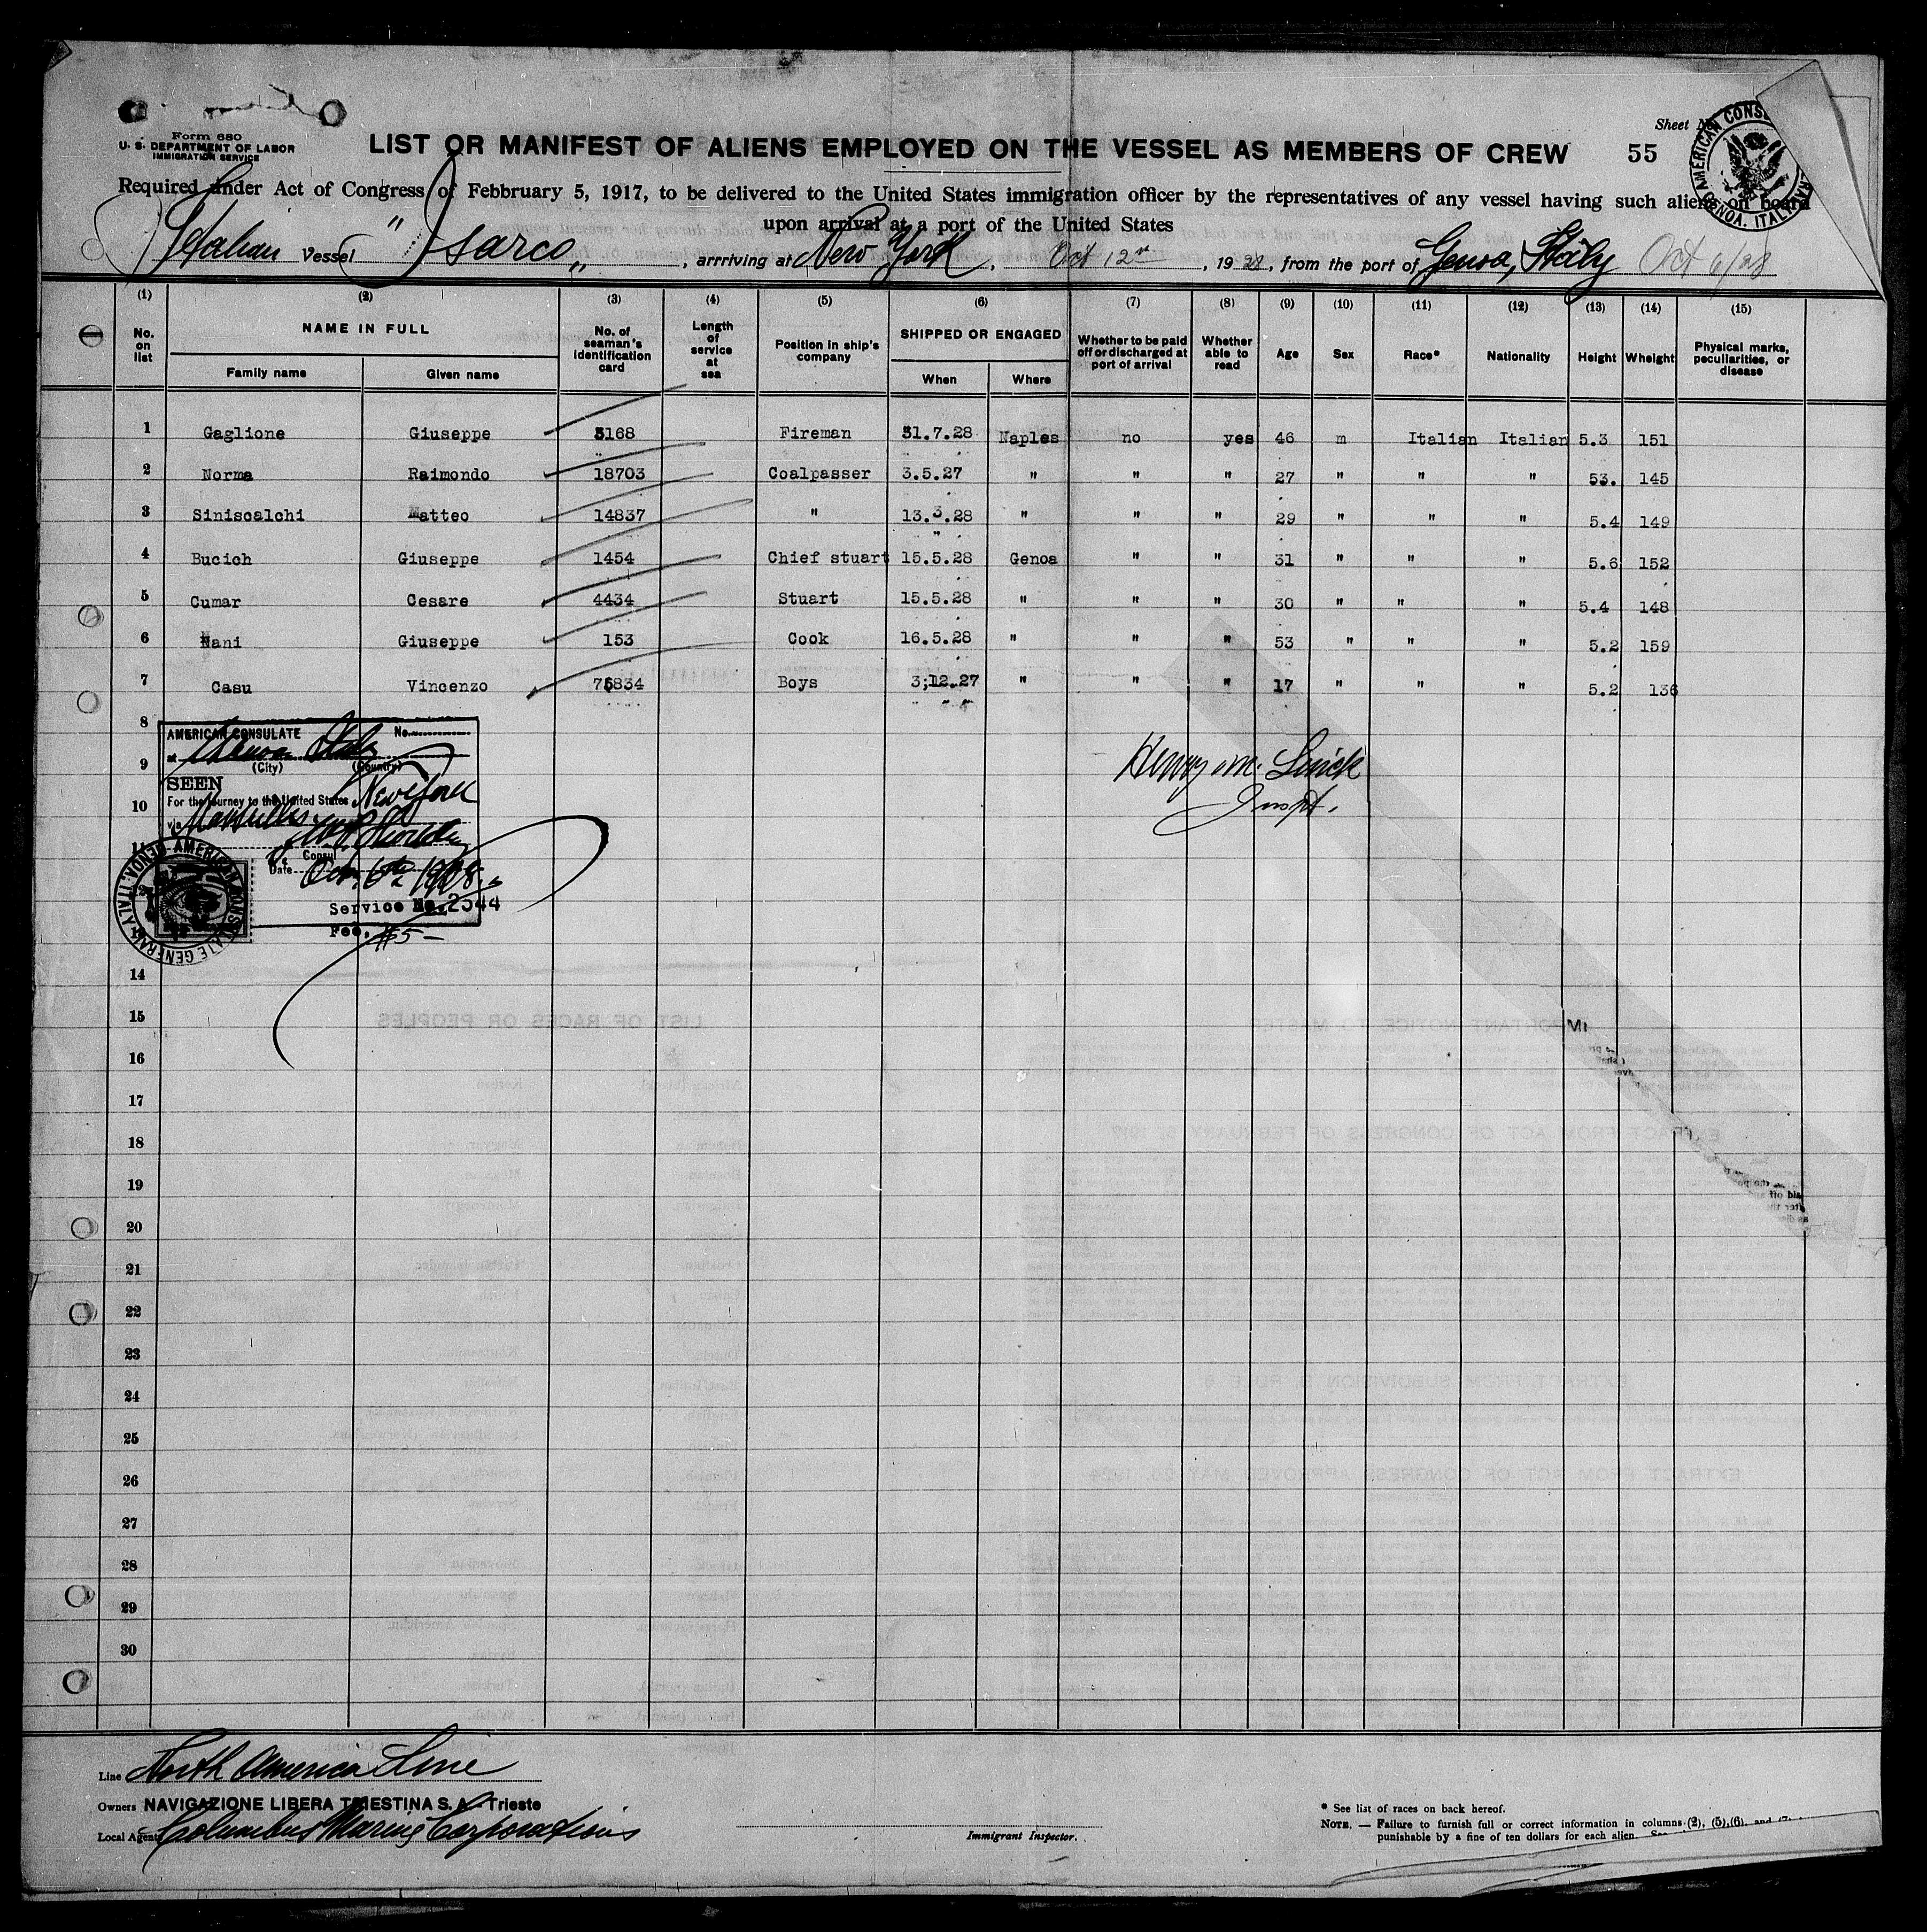 Form 680
U. S. DEPARTMENT OF LABOR
IMMIGRATION SERVICE
Sheet No.
AMERICAN CONS
GENOA. ITALY
LIST OR MANIFEST OF ALIENS EMPLOYED ON THE VESSEL AS MEMBERS OF CREW 55
Required under Act of Congress of Febbruary 5, 1917, to be delivered to the United States immigration officer by the representatives of any vessel having such aliens on board
upon arrival at a port of the United States
Italian Vessel "Isarco", arrriving at New York, Oct 12, 1928, from the port of Genoa, Italy Oct 6/28
(1) (2) (3) (4) (5) (6) (7) (8) (9) (10) (11) (12) (13) (14) (15)
No. on list NAME IN FULL Family name Given name No. of seaman's identification card Length of service at sea Position in ship's company SHIPPED OR ENGAGED When Where Whether to be paid off or discharged at port of arrival Whether able to read Age Sex Race* Nationality Height Wheight Physical marks, peculiarities, or disease
1 Gaglione Giuseppe 3168 Fireman 31.7.28 Naples no yes 46 m Italian Italian 5.3 151
2 Norma Raimondo 18703 Coalpasser 3.5.27 " " " 27 " " " 53. 145
3 Siniscalchi Matteo 14837 " 13.3.28 " " " 29 " " " 5.4 149
4 Bucich Giuseppe 1454 Chief stuart 15.5.28 Genoa " " 31 " " " 5.6 152
5 Cumar Cesare 4434 Stuart 15.5.28 " " " 30 " " " 5.4 148
6 Nani Giuseppe 153 Cook 16.5.28 " " " 53 " " " 5.2 159
7 Casu Vincenzo 75834 Boys 3;12.27 " " " 17 " " " 5.2 136
8
9
10
11
12
14
15
16
17
18
19
20
21
22
23
24
25
26
27
28
29
30
AMERICAN CONSULATE No.
at Genoa Italy
(City) (Country)
SEEN
For the journey to the United States New York
via Marseilles
Consul
Date Oct. 6th 1928.
Service No. 2544
Fee, $5-
AMERICAN CONSULATE GENERAL GENOA, ITALY
Henry M. Linick
Inspt.
Line North America Line
Owners NAVIGAZIONE LIBERA TRIESTINA S. A. - Trieste
Local Agents Columbus Marine Corporations
Immigrant Inspector.
* See list of races on back hereof.
NOTE. — Failure to furnish full or correct information in columns (2), (5), (6), and (7)
punishable by a fine of ten dollars for each alien.